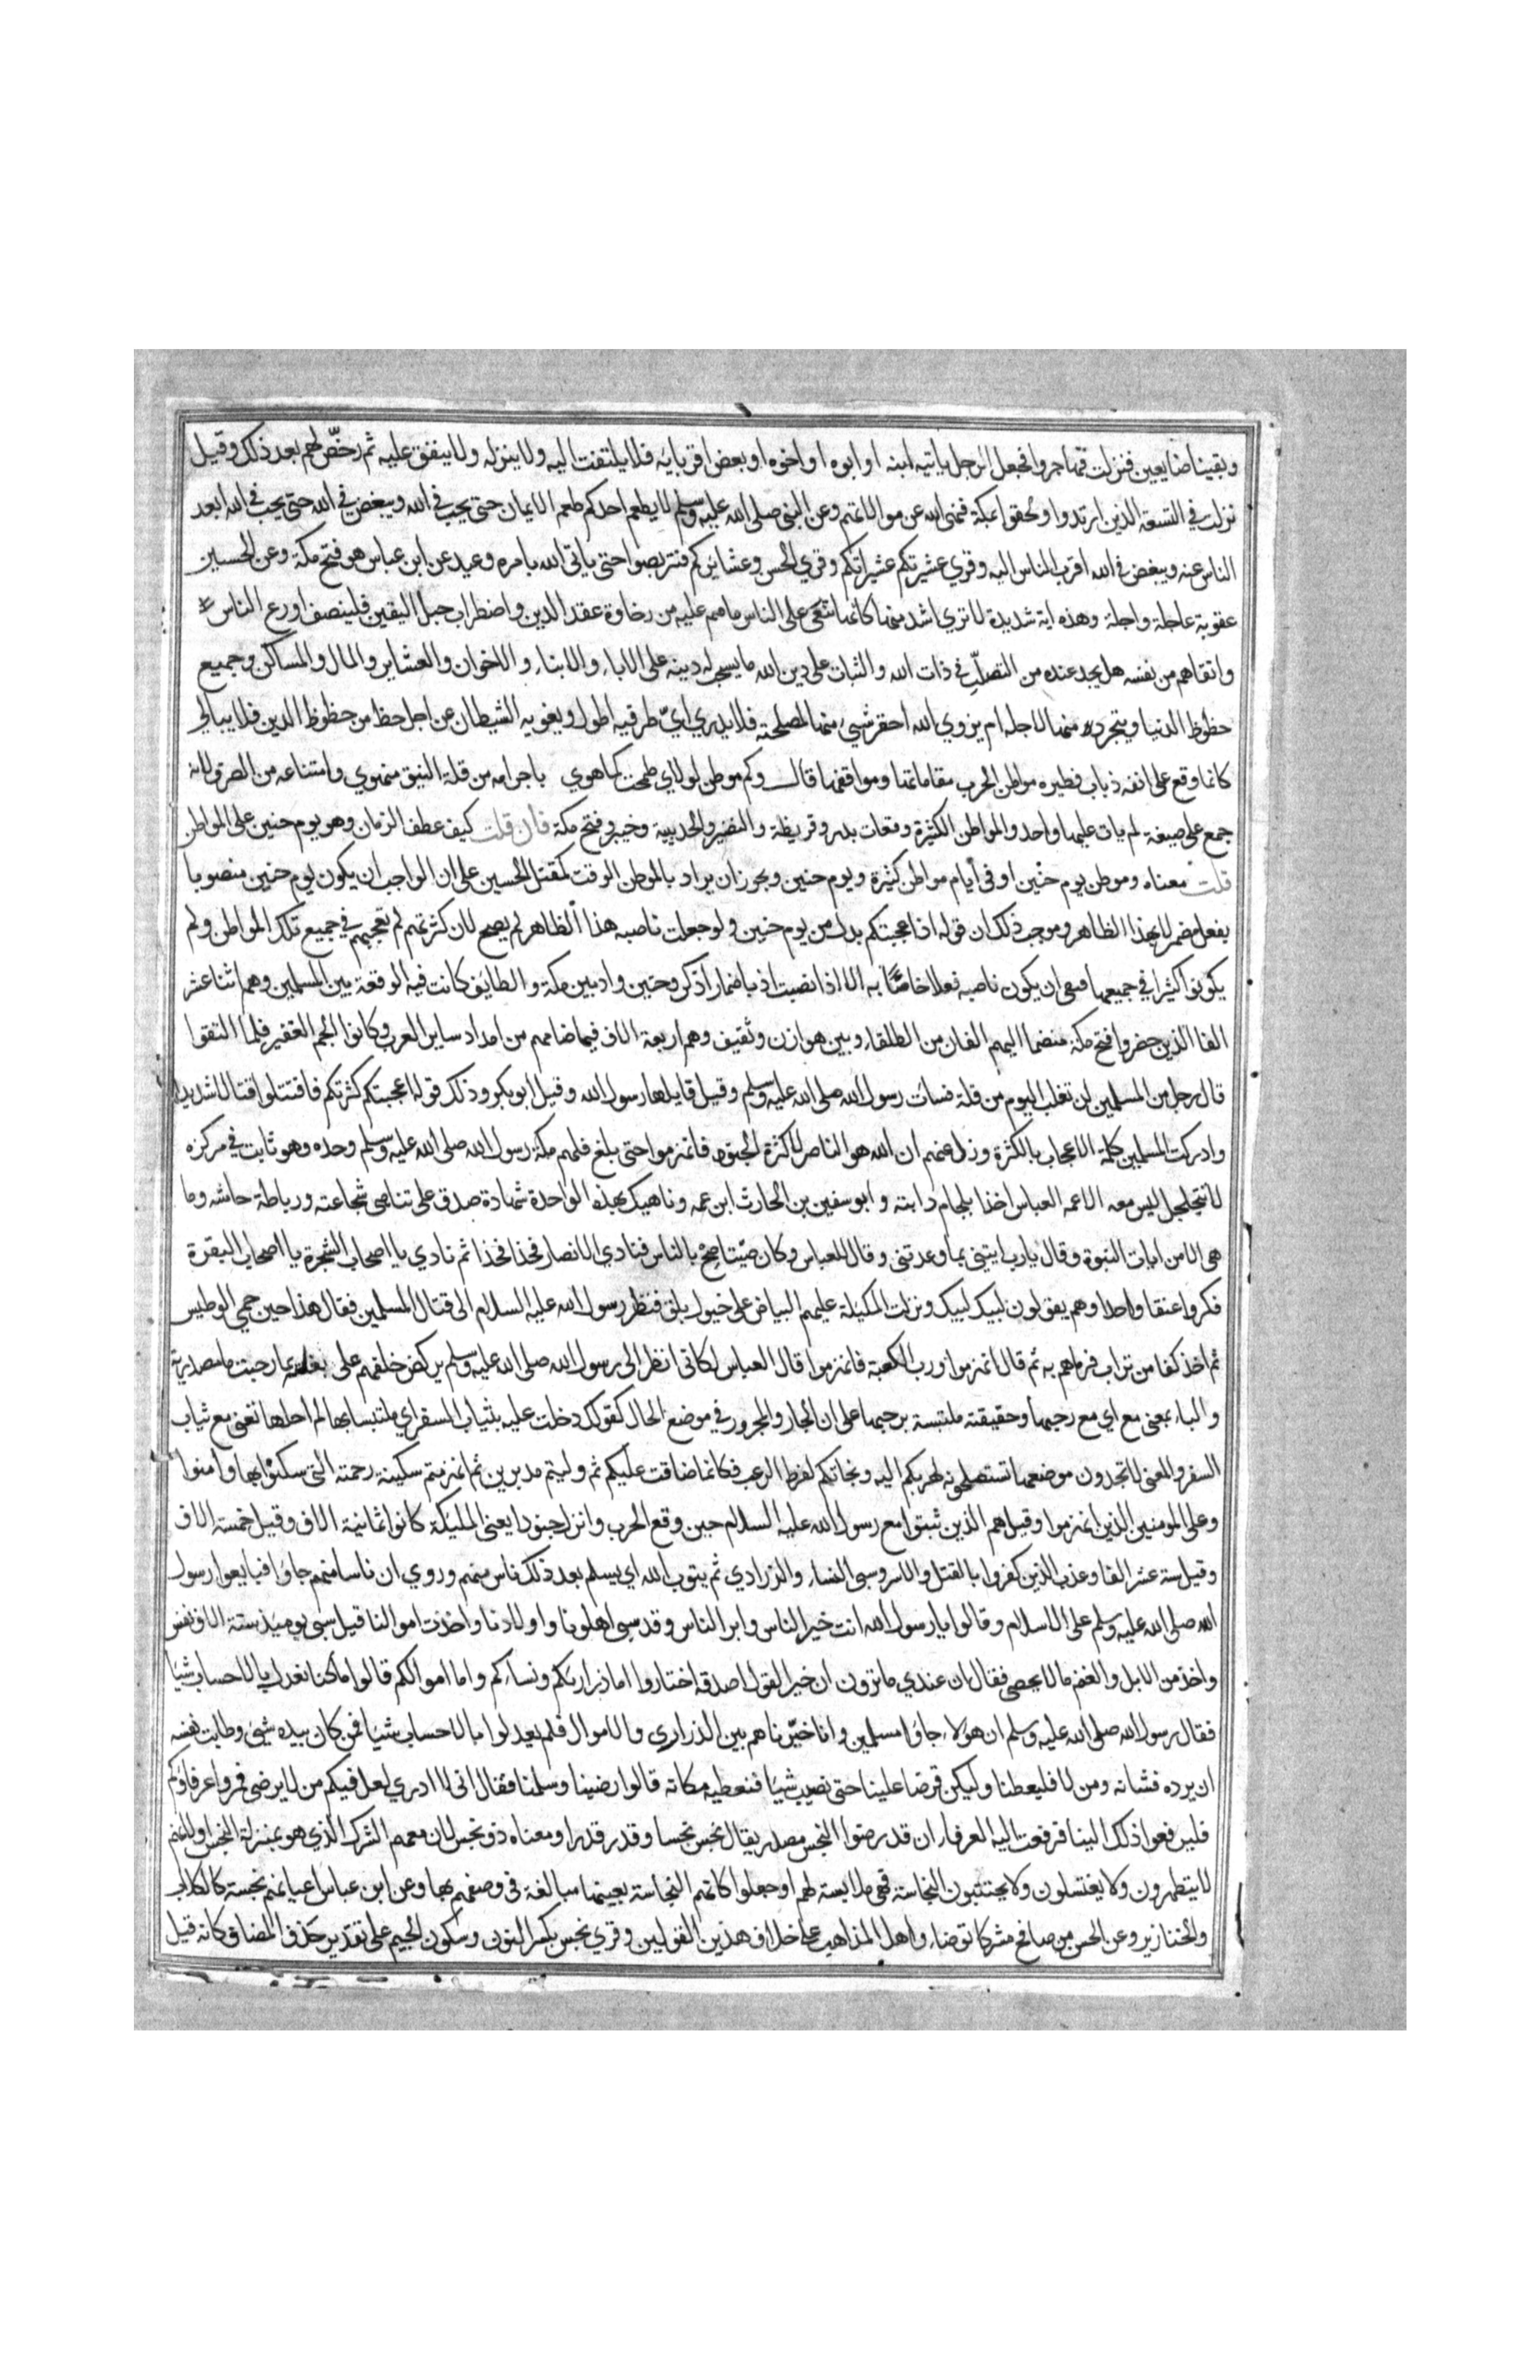 وبقينا ضايعين فنزلت فهاجروا فجعل الرجل ياتيه ابنه او ابوه او اخوه او بعض اقربايه فلا يلتفت اليه ولا ينزله ولا ينفق عليه ثم رخص لهم بعد ذلك وقيل
نزلت في التسعة الذين ارتدوا ولحقوا بمكة فنهى الله عن موالاتهم وعن النبي صلى الله عليه وسلم لا يطعم احدكم طعم الايمان حتى يحب في الله ويبغض في الله حتى يحب في الله ابعد
الناس عنه ويبغض في الله اقرب الناس اليه وقري عشيرتكم عشيراتكم وقري الحسن وعشايركم فتربصوا حتى ياتي الله بامره وعيد عن ابن عباس هو فتح مكة وعن الحسن
عقوبة عاجلة واجلة وهذه اية شديدة لا تري اشد منها كانها تنعى على الناس ما هم عليه من رخاوة عقد الدين واضطراب حبل اليقين فلينصف اورع الناس
واتقاهم من نفسه هل يجد عنده من التصلب في ذات الله والثبات على دين الله ما يستحب له دينه على الاباء والابناء والاخوان والعشاير والمال والمساكن وجميع
حظوظ الدنيا ويتجرد منها لاجله ام يزوي الله احقر شيء منها لمصلحته فلا يدري اي طرفيه اطول ويغويه الشيطان عن اجل حظ من حظوظ الدين فلا يبالي
كانما وقع على انفه ذباب فطيره مواطن الحرب مقاماتها ومواقفها قال وكم موطن لولاي طحت كما هوي باجرامه من قلة النيق منهوي وامتناعه من الصرف لانه
جمع على صيغة لم يات عليها واحد والمواطن الكثيرة وقعات بدر وقريظة والنضير والحديبية وخيبر وفتح مكة فان قلت كيف عطف الزمان وهو يوم حنين على المواطن
قلت معناه وموطن يوم حنين او في ايام مواطن كثيرة ويوم حنين ويجوز ان يراد بالموطن الوقت كمقتل الحسين على ان الواجب ان يكون يوم حنين منصوبا
بفعل مضمر لا بهذا الظاهر وموجب ذلك ان قوله اذ اعجبتكم بدل من يوم حنين ولو جعلت ناصبه هذا الظاهر لم يصح لان كثرتهم لم تعجبهم في جميع تلك المواطن ولم
يكونوا كثيرا في جميعها فبقى ان يكون ناصبه فعلا خاصا به الا اذا نصبت اذ باضمار اذكر وحنين واد بين مكة والطايف كانت فيه الوقعة بين المسلمين وهم اثنا عشر
الفا الذين حضروا فتح مكة منضما اليهم الفان من الطلقاء وبين هوازن وثقيف وهم اربعة الاف فيما ضامهم من امداد ساير العرب وكانوا الجم الغفير فلما التقوا
قال رجل من المسلمين لن تغلب اليوم من قلة فسات رسول الله صلى الله عليه وسلم وقيل قايلها رسول الله وقيل ابو بكر وذلك قوله اعجبتكم كثرتكم فاقتتلوا قتالا شديدا
وادركت المسلمين كلمة الاعجاب بالكثرة وزل عنهم ان الله هو الناصر لا كثرة الجنود فانهزموا حتى بلغ فلهم مكة رسول الله صلى الله عليه وسلم وحده وهو ثابت في مركزه
لا يتحلحل ليس معه الا عمه العباس اخذا بلجام دابته وابو سفين بن الحارث ابن عمه وناهيك بهذه الواحدة شهادة صدق على تناهي شجاعته ورباطة جاشه وما
هي الا من ايات النبوة وقال يارب ايتني بما وعدتني وقال للعباس وكان صيتا صح بالناس فنادي الانصار فخذا فخذا ثم نادي يا اصحاب الشجرة يا اصحاب البقرة
فكروا عنقا واحدا وهم يقولون لبيك لبيك ونزلت الملئيكة عليهم البياض على خيول بلق فنظر رسول الله عليه السلام الى قتال المسلمين فقال هذا حين حمي الوطيس
ثم اخذ كفا من تراب فرماهم به ثم قال انهزموا ورب الكعبة فانهزموا قال العباس لكاني انظر الى رسول الله صلى الله عليه وسلم يركض خلفهم على بغلته بما رحبت ما مصدرية
والباء بمعنى مع اي مع رحبها وحقيقته ملتبسة برحبها على ان الجار والمجرور في موضع الحال كقولك دخلت عليه بثياب السفر اي ملتبسا بها لم احلها تعني مع ثياب
السفر والمعنى لا تجدون موضعها تستصلحونه لهربكم اليه ونجاتكم لفرط الرعب فكانما ضاقت عليكم ثم وليتم مدبرين ثم انهزمتم سكينته رحمته التي سكنوا بها وامنوا
وعلى المومنين الذين انهزموا وقيل هم الذين ثبتوا مع رسول الله عليه السلام حين وقع الحرب وانزل جنودا يعني الملئيكة كانوا ثمانية الاف وقيل خمسة الاف
وقيل ستة عشر الفا وعذب الذين كفروا بالقتل والاسر وسبى النساء والذراري ثم يتوب الله اي يسلم بعد ذلك ناس منهم وروي ان ناسا منهم جاؤا فبايعوا رسول
الله صلى الله عليه وسلم على الاسلام وقالوا يا رسول الله انت خير الناس وابر الناس وقد سبي اهلونا واولادنا واخذت اموالنا قيل سبي يوميذ ستة الاف نفس
واخذ من الابل والغنم ما لا يحصى فقال ان عندي ما ترون ان خير القول اصدقه اختاروا اما ذراريكم ونساءكم واما اموالكم قالوا ما كنا نعدل بالاحساب شيئا
فقال رسول الله صلى الله عليه وسلم ان هولاء جاؤا مسلمين وانا خيرناهم بين الذراري والاموال فلم يعدلوا بالاحساب شيئا فمن كان بيده شيئ وطابت نفسه
ان يرده فشانه ومن لا فليعطنا وليكن قرضا علينا حتى نصيب شيئا فنعطيه مكانه قالوا رضينا وسلمنا فقال اني لا ادري لعل فيكم من لا يرضى فمروا عرفاؤكم
فليرفعوا ذلك الينا فرفعت اليه العرفاء ان قد رضوا النجس مصدر يقال نجس نجسا وقذر قذرا ومعناه ذو نجس لان معهم الشرك الذي هو بمنزلة النجس ولانهم
لا يتطهرون ولا يغتسلون ولا يجتنبون النجاسة فهي ملابسة لهم او جعلوا كانهم النجاسة بعينها مبالغة في وصفهم بها وعن ابن عباس اعيانهم نجسة كالكلاب
والخنازير وعن الحسن من صافح مشركا توضاء واهل المذاهب على خلاف هذين القولين وقري نجس بكسر النون وسكون الجيم على تقدير حذف المضاف كانه قيل